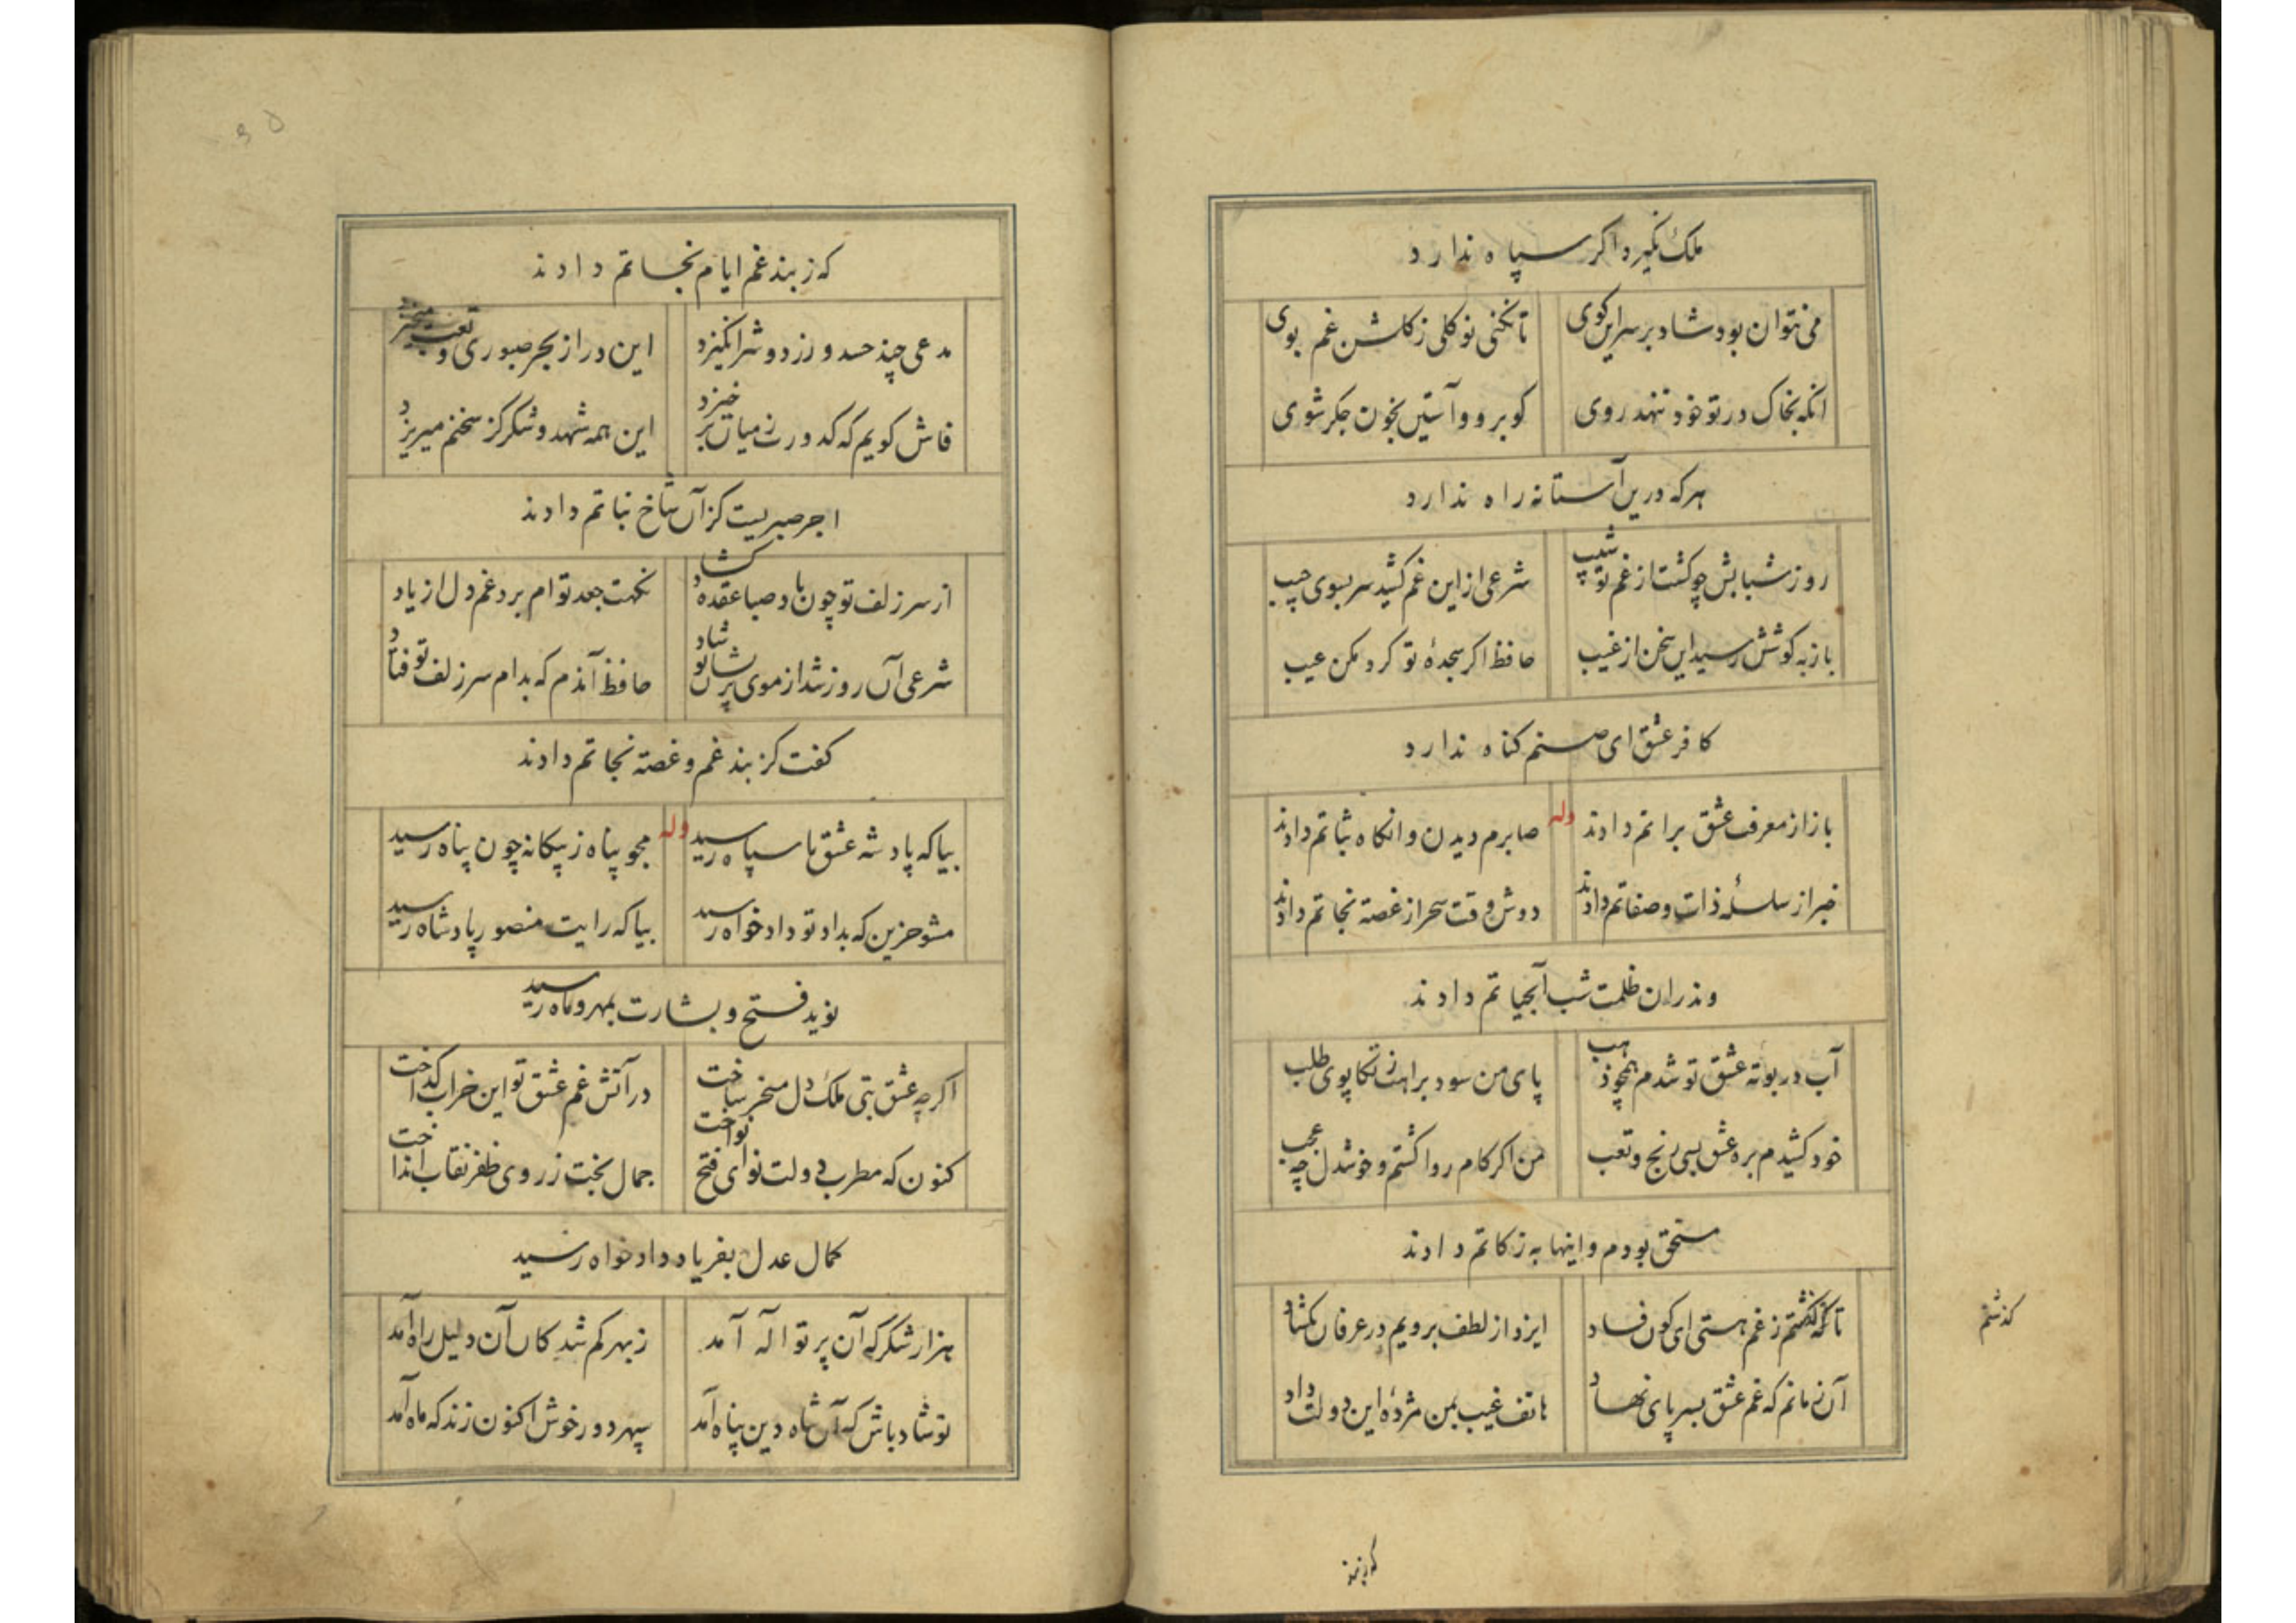 ملک نگیرد اگر سپاه ندارد
می نتوان بود شاد بر سر این کوی تا نکنی نو گلی ز گلشن غم بوی
انکه بخاک در تو خود ننهد روی گو برو و آستین بخون جگر شوی
هر که درین آستانه راه ندارد
روز شبابش چو گشت از غم تو شیب شرعی از این غم کشید سر بسوی جیب
باز به گوشش رسید این سخن از غیب حافظ اگر سجدهٔ تو کرد مکن عیب
کافر عشق ای صنم گناه ندارد
باز از معرف عشق براتم دادند وله صابرم دیدن و انگاه ثباتم دادند
خبر از سلسلهٔ ذات و صفاتم دادند دوش وقت سحر از غصه نجاتم دادند
وندران ظلمت شب آبحیاتم دادند
آب در بوته عشق تو شدم همچو ذهب پای من سود براهت ز تکاپوی طلب
خود کشیدم بره عشق بسی رنج و تعب من اگر کام روا گشتم و خوشدل چه عجب
مستحق بودم و اینها به زکاتم دادند
تا که گذشتم ز غم هستی ای کون فساد ایزد از لطف برویم در عرفان بگشاد
گذشتم
آن نمانم که غم عشق بسر پای نهاد هاتف غیب بمن مژدهٔ این دولت داد
که ز بند
که ز بند غم ایام نجاتم دادند
مدعی چند حسد ورزد و شر انگیزد این در از بحر صبوری و تعب
فاش گویم که کدورت ز میان بر خیزد این همه شهد و شکر کز سخنم میریزد
اجر صبریست کز آن شاخ نباتم دادند
از سر زلف تو چون باد صبا عقده گشاد نکهت جعد توام برد غم دل از یاد
شرعی آن روز شد از موی پریشان تو شاد حافظ آندم که بدام سر زلف تو فتاد
گفت کز بند غم و غصه نجاتم دادند
بیا که پادشه عشق با سپاه رسید وله مجو پناه ز بیگانه چون پناه رسید
مشو حزین که بداد تو داد خواه رسید بیا که رایت منصور پادشاه رسید
نوید فتح و بشارت بمهر و ماه رسید
اگر چه عشق بتی ملک دل مسخر ساخت در آتش غم عشق تو این خراب گداخت
کنون که مطرب دولت نوای فتح نواخت جمال بخت ز روی ظفر نقاب انداخت
کمال عدل بفریاد داد خواه رسید
هزار شکر که آن پرتو اله آمد ز بهر گم شدگان آن دلیل راه آمد
تو شاد باش که آن شاه دین پناه آمد سپهر دور خوش اکنون زند که ماه آمد